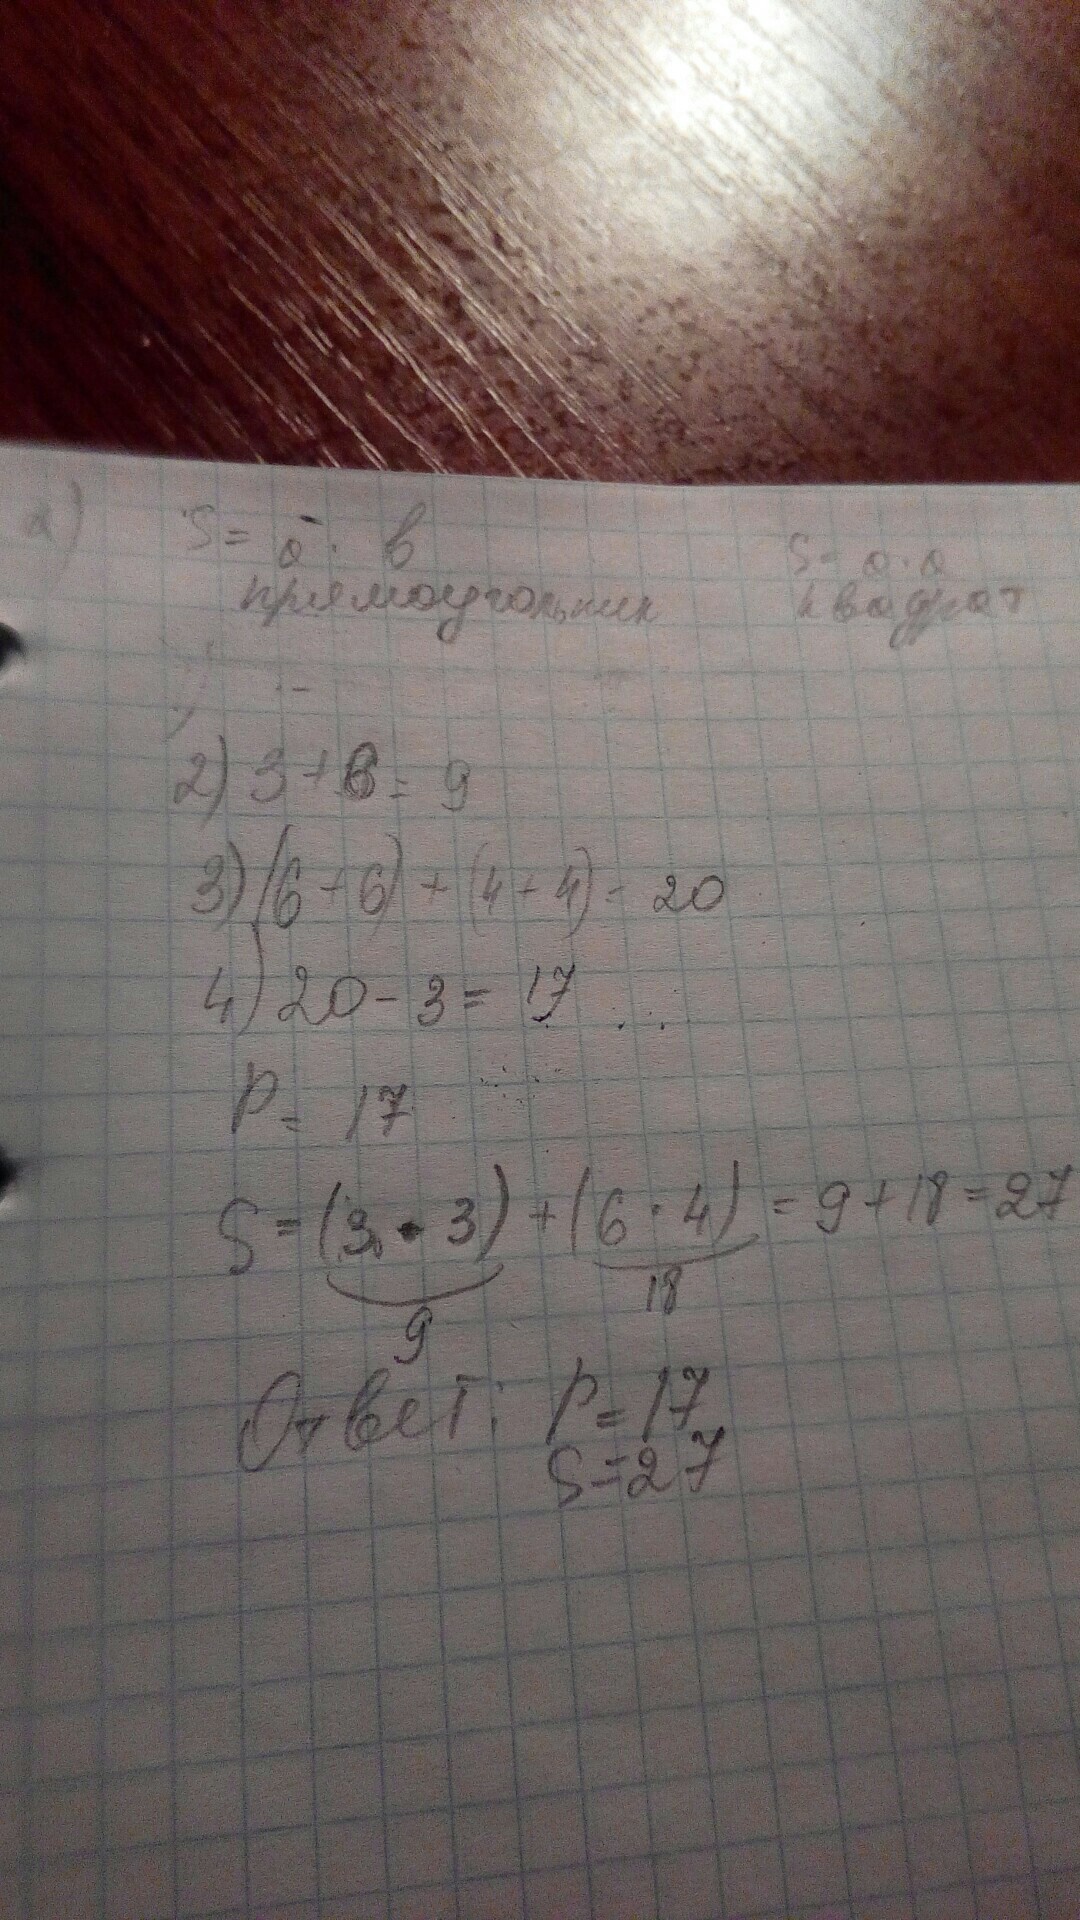 2) S = а · в S = а · а
прямоугольник квадрат
2) 3 + 6 = 9
3) (6 + 6) + (4 + 4) = 20
4) 20 - 3 = 17
P = 17
S = (3 · 3) + (6 · 4) = 9 + 18 = 27
9 18
Ответ: P = 17
S = 27